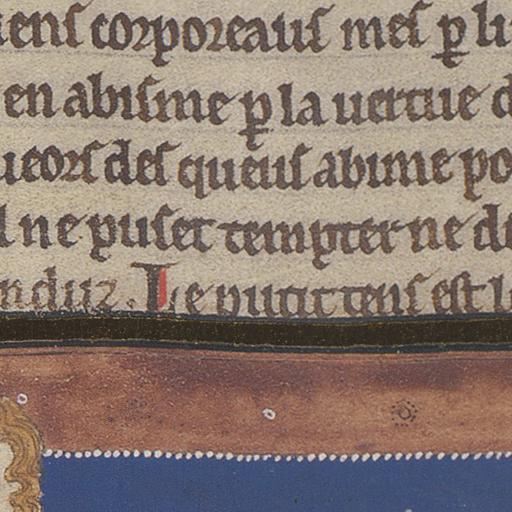 iens corporeaus mes ꝑ li
en abisme ꝑ la uertue d
ueors des queus abime po
l ne puset tempter ne de
nduz. Le putit tens est l